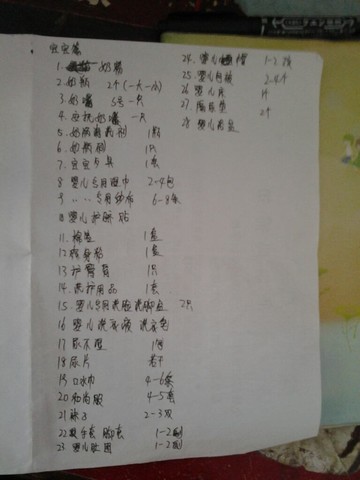 宝宝篇
1. 奶粉
2. 奶瓶 2个(一大一小)
3. 奶嘴 5号一只
4. 安抚奶嘴 一只
5. 奶瓶消毒剂 1瓶
6. 奶瓶刷 1只
7. 宝宝餐具 1套
8 婴儿专用湿巾 2-4包
9 〃 〃 专用纱布 6-8条
10 婴儿护脐贴
11. 棉签 1盒
12 爽身粉 1盒
13 护臀膏 1只
14. 洗护用品 1套
15. 婴儿专用洗脸洗脚盆 2只
16 婴儿洗衣液 洗衣皂
17 尿不湿 1包
18 尿片 若干
19 口水巾 4-6条
20 和尚服 4-5套
21 袜子 2-3双
22 手套 脚套 1-2副
23 婴儿肚围 1-2副
24. 婴儿帽 1-2顶
25. 婴儿包被 2-4个
26 婴儿床
27. 隔尿垫 2个
28 婴儿